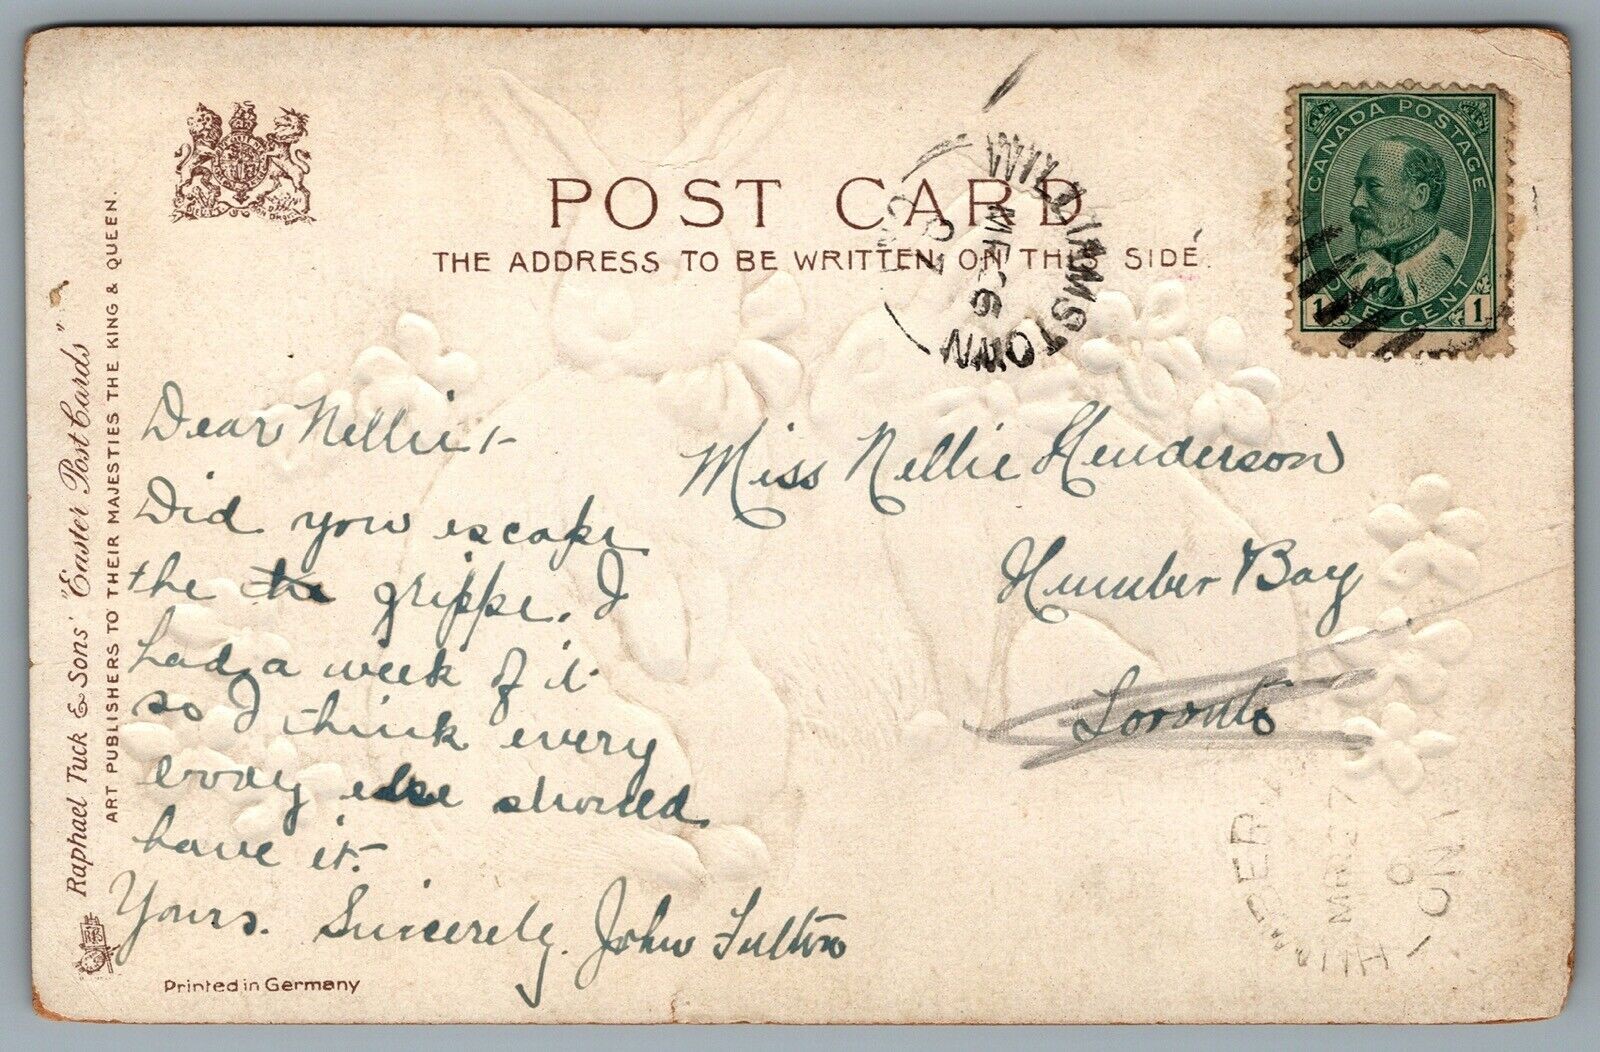 POST CARD
THE ADDRESS TO BE WRITTEN ON THIS SIDE.
CANADA POSTAGE
1 ONE CENT 1
WILLIAMSTOWN
Raphael Tuck & Sons' "Easter Post Cards"
ART PUBLISHERS TO THEIR MAJESTIES THE KING & QUEEN.
Dear Nellie,-
Did you escape
the the grippe. I
had a week of it
so I think every
body else should
have it.
Yours. Sincerely. John Fulton
Miss Nellie Henderson
Humber Bay
Toronto
HUMBER
ONT
Printed in Germany